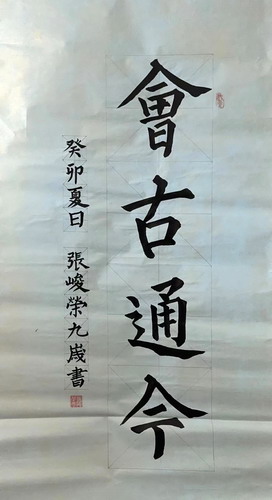 會古通今
癸卯夏日 張峻榮九歲書